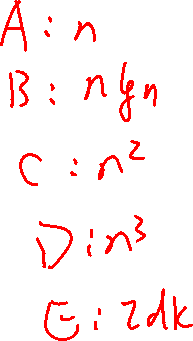 A: n
B: n lg n
C: n²
D: n³
E: idk